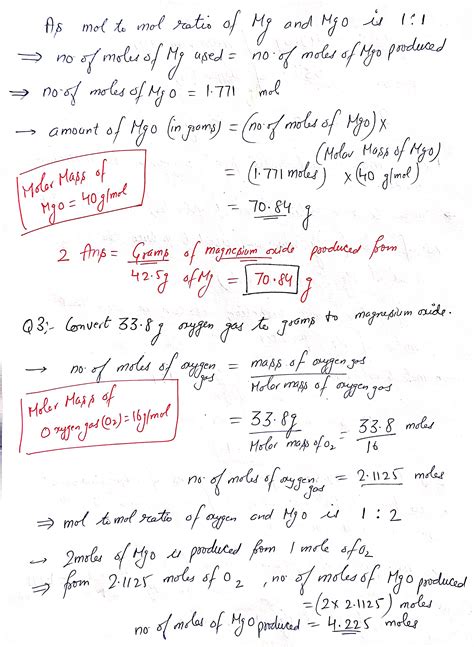 As mol to mol ratio of Mg and MgO is 1:1
⇒ no of moles of Mg used = no. of moles of MgO produced
⇒ no. of moles of MgO = 1.771 mol
→ amount of MgO (in grams) = (no. of moles of MgO) x
(Molar Mass of MgO)
Molar Mass of
MgO = 40 g/mol
= (1.771 moles) x (40 g/mol)
= 70.84 g
2 Ans = Grams of magnesium oxide produced from
42.5g of Mg = 70.84 g
Q3:- Convert 33.8 g oxygen gas to grams to magnesium oxide.
→ no. of moles of oxygen gas = mass of oxygen gas / Molar mass of oxygen gas
Molar Mass of
Oxygen gas (O2) = 16g/mol
= 33.8g / Molar mass of O2 = 33.8 / 16 moles
no. of moles of oxygen gas = 2.1125 moles
⇒ mol to mol ratio of oxygen and MgO is 1 : 2
→ 2 moles of MgO is produced from 1 mole of O2
⇒ from 2.1125 moles of O2, no of moles of MgO produced
= (2 x 2.1125) moles
no of moles of MgO produced = 4.225 moles